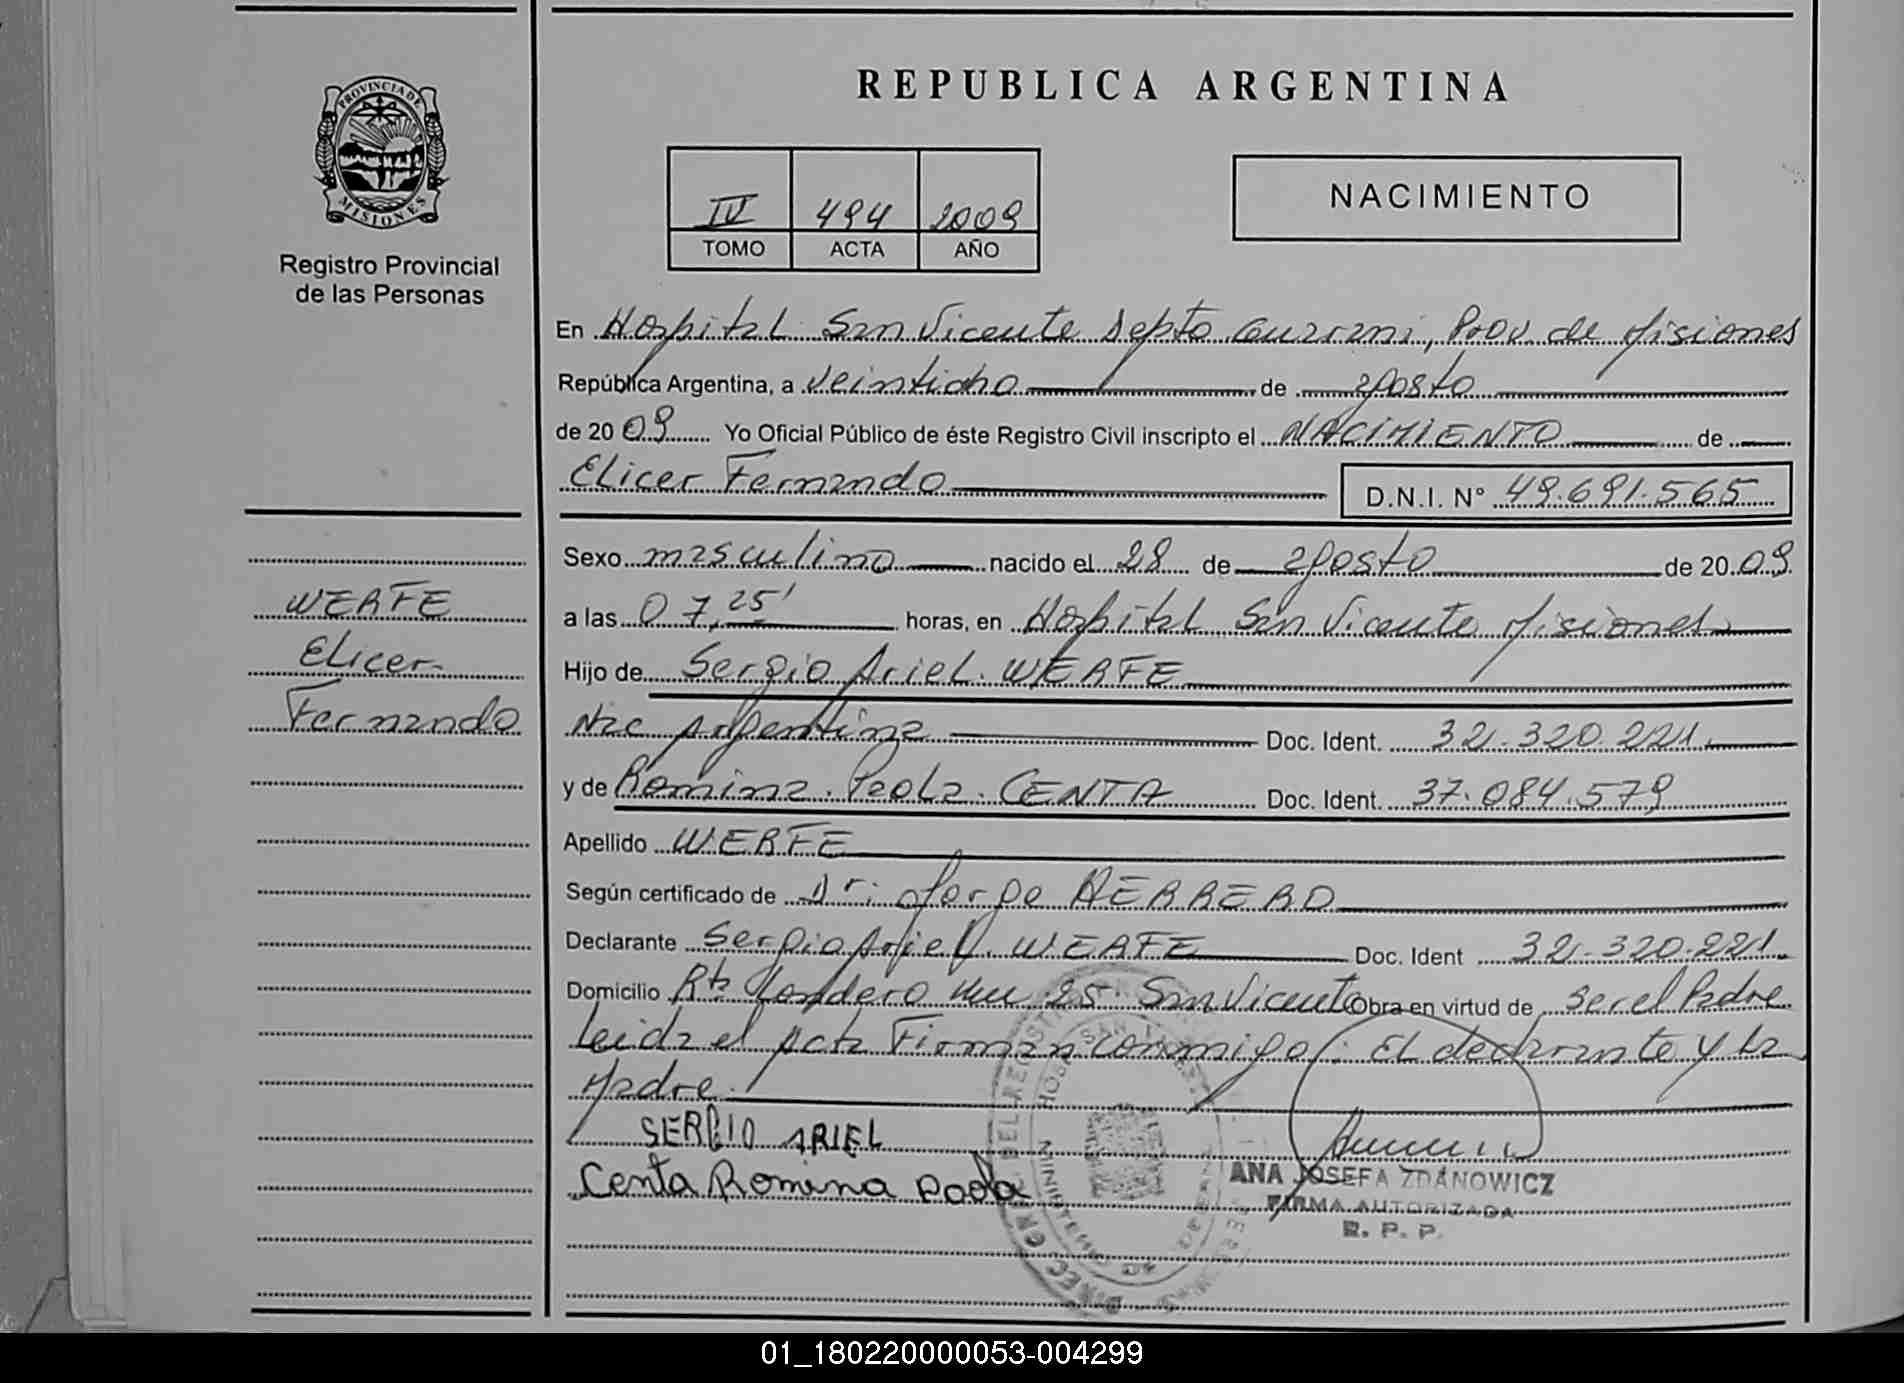 REPUBLICA ARGENTINA
PROVINCIA DE
MISIONES
Registro Provincial
de las Personas
IV 494 2009
TOMO ACTA AÑO
NACIMIENTO
En Hospital San Vicente Depto Guarani, Prov. de Misiones
República Argentina, a veintiocho de agosto
de 2009 Yo Oficial Público de éste Registro Civil inscripto el NACIMIENTO de
Elicer Fernando D.N.I. N° 49.691.565
Sexo masculino nacido el 28 de agosto de 2009
a las 07,25' horas, en Hospital San Vicente Misiones
Hijo de Sergio Ariel WERFE
Nac Argentina Doc. Ident. 32.320.221
y de Romina Paola CENTA Doc. Ident. 37.084.579
Apellido WERFE
Según certificado de Dr: Jorge HERRERO
Declarante Sergio Ariel WERFE Doc. Ident 32.320.221
Domicilio San Vicente Obra en virtud de ser el Padre
Leida el Acta Firman conmigo: El declarante y la
Madre.
SERGIO ARIEL
Centa Romina Paola
ANA JOSEFA ZDANOWICZ
FIRMA AUTORIZADA
R. P. P.
WERFE
Elicer
Fernando
01_180220000053-004299